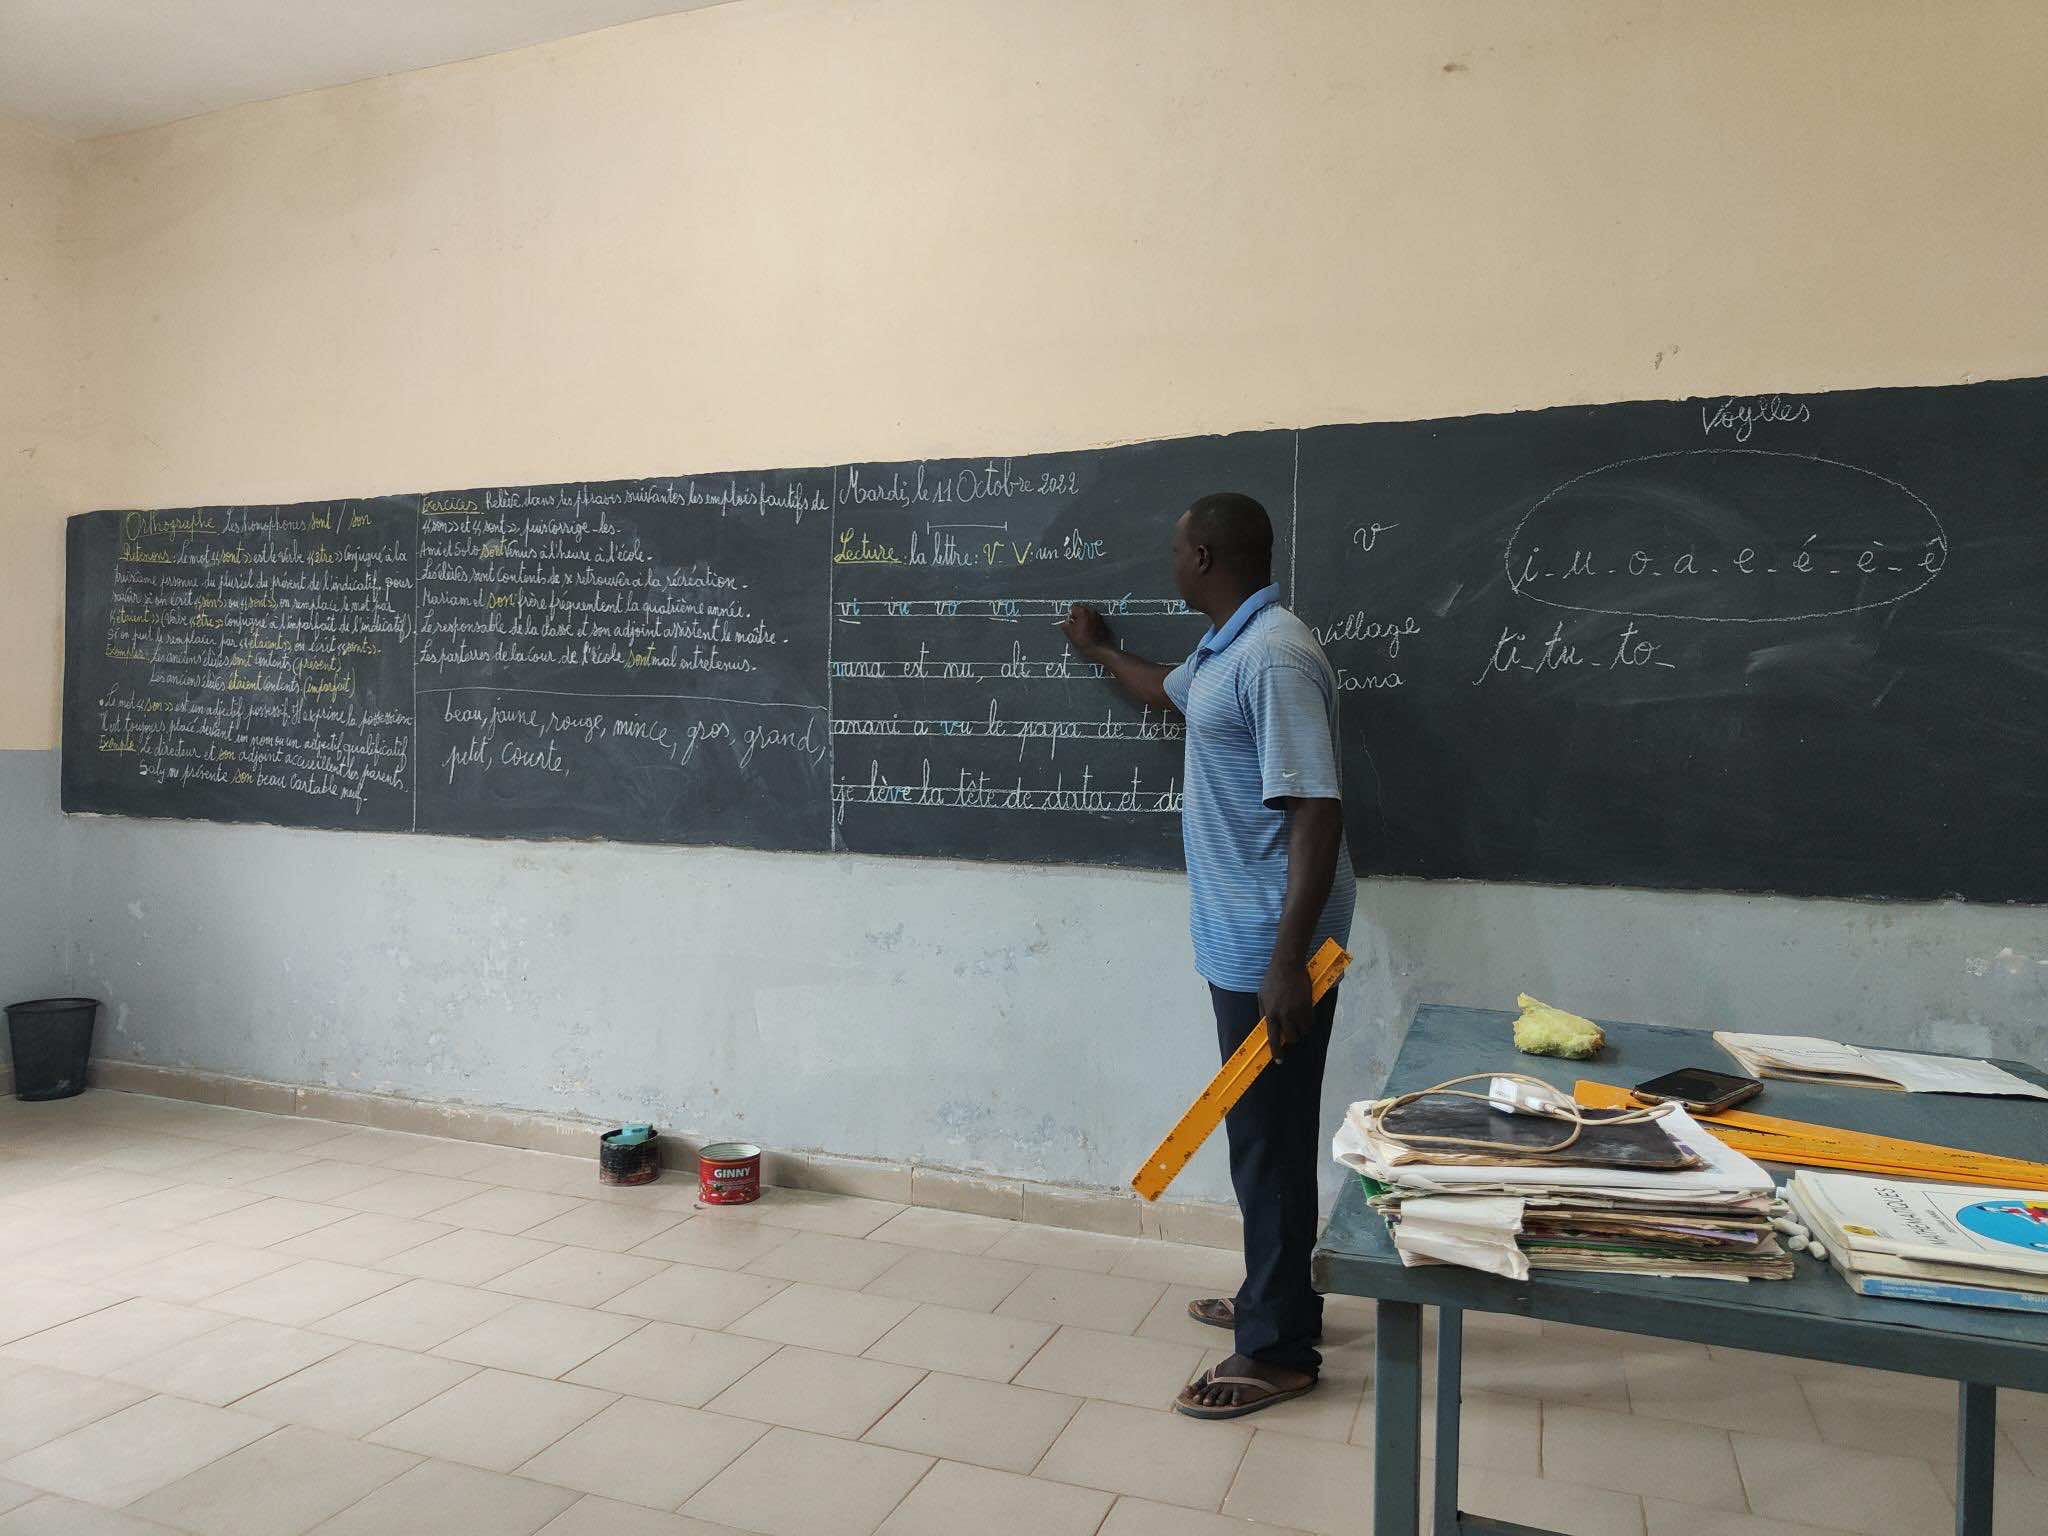 Orthographe Les homophones sont / son
Retenons : Le mot «sont» est le verbe «être» conjugué à la
troisième personne du pluriel du présent de l'indicatif, pour
savoir si on écrit «son» ou «sont», on remplace le mot par
«étaient» (verbe «être» conjugué à l'imparfait de l'indicatif).
Si on peut le remplacer par «étaient» on écrit «sont».
Exemples : Les anciens élèves sont contents (présent)
Les anciens élèves étaient contents. (imparfait)
• Le mot «son» est un adjectif possessif. Il exprime la possession
Il est toujours placé devant un nom ou un adjectif qualificatif
Exemple Le directeur et son adjoint accueillent les parents.
Saly me présente son beau cartable neuf.
Exercices Relève dans les phrases suivantes les emplois fautifs de
«son» et «sont» puis corrige-les.
Ami et Solo sont venus à l'heure à l'école.
Les élèves sont contents de se retrouver à la récréation.
Mariam et son frère fréquentent la quatrième année.
Le responsable de la classe et son adjoint assistent le maître.
Les parterres de la cour de l'école sont mal entretenus.
beau, jaune, rouge, mince, gros, grand,
petit, courte,
Mardi, le 11 Octobre 2022
Lecture : la lettre : v V : un élève
vi vu vo va ve vé vè
vana est nu, ali est
anani a vu le papa de toto
je lève la tête de data et do
v
village
vana
Voylles
i - u - o - a - e - é - è - ê
ti - tu - to -
GINNY
MATHÉMATIQUES